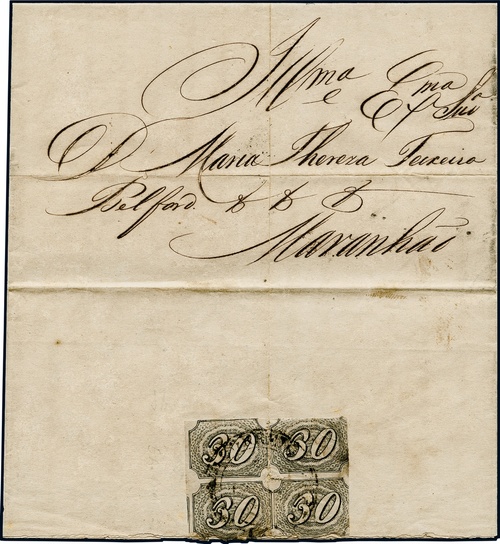 Illma e Exma Snra
D Maria Thereza Teixeira
Belford & & &
Maranhão
30 30
30 30